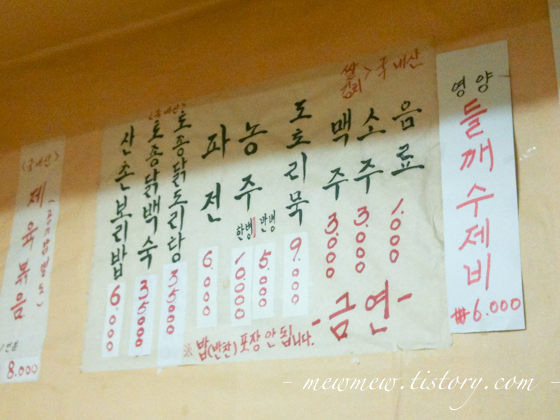 (국내산)
제육볶음
8.000
산촌보리밥
6.000
(국내산)
토종닭백숙
35000
토종닭도리탕
35000
파전
6.000
농주
한병
10.000
반병
5.000
도토리묵
9.000
맥주
3.000
소주
3.000
음료
1.000
쌀
김치 > 국내산
-금연-
※ 밥(반찬) 포장 안 됩니다.
영양
들깨수제비
₩6.000
- mewmew.tistory.com -